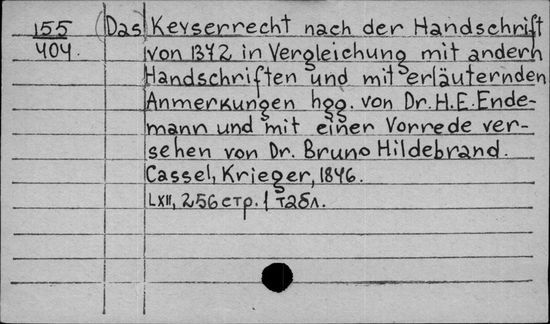 155 (Das) Keyserrecht nach der Handschrift
404. von 1372 in Vergleichung mit andern
Handschriften und mit erläuternden
Anmerkungen hgg. von Dr. H. E. Ende-
mann und mit einer Vorrede ver-
sehen von Dr. Bruno Hildebrand.
Cassel, Krieger, 1846.
LXII, 256 стр. 1 табл.